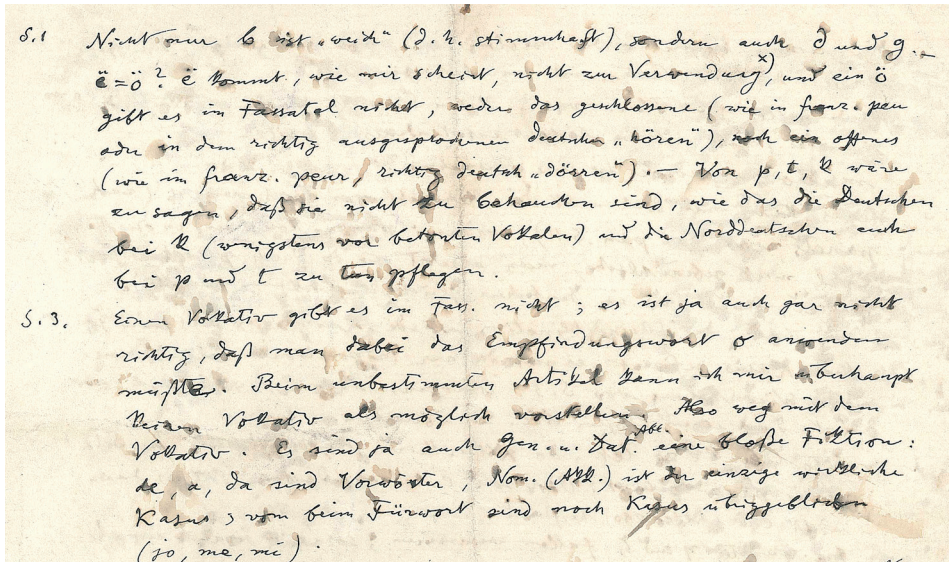 S.1 Nicht nur b ist „weich" (d. h. stimmhaft), sondern auch d und g. –
ë = ö? ë kommt, wie mir scheint, nicht zur Verwendung x), und ein ö
gibt es im Fassatal nicht, weder das geschlossene (wie in franz. peu
oder in dem richtig ausgesprochenen deutschen „hören"), noch ein offenes
(wie im franz. peur, richtig deutsch „dörren"). – Von p, t, k wäre
zu sagen, daß sie nicht zu behauchen sind, wie das die Deutschen
bei k (wenigstens vor betonten Vokalen) und die Norddeutschen auch
bei p und t zu tun pflegen.
S.3. Einen Vokativ gibt es im Fass. nicht; es ist ja auch gar nicht
richtig, daß man dabei das Empfindungswort o anwenden
müßte. Beim unbestimmten Artikel kann ich mir überhaupt
keinen Vokativ als möglich vorstellen. Also weg mit dem
Vokativ. Es sind ja auch Gen. u. Dat. Abl. eine bloße Fiktion:
de, a, da sind Vorwörter, Nom. (Akk.) ist der einzige wirkliche
Kasus; beim Fürwort sind noch Kasus übriggeblieben
(jo, me, mi).